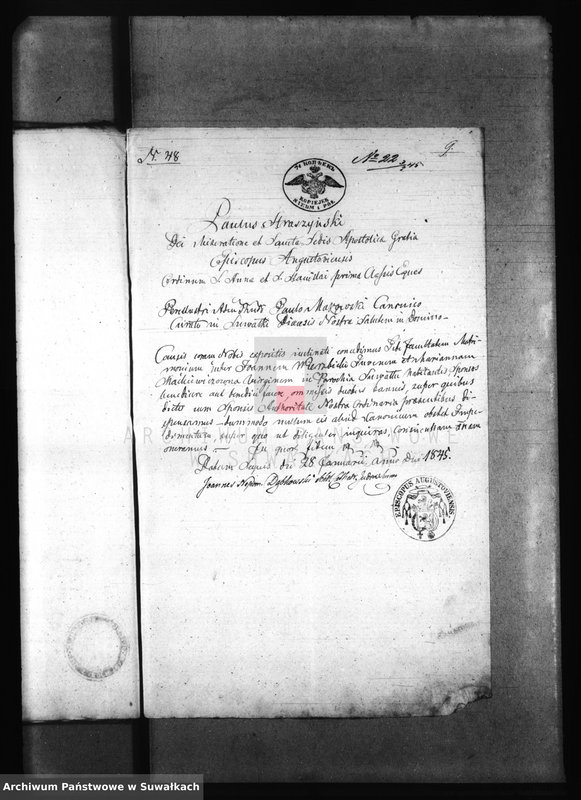 N. 48
No 22 3/2 45
9.
75 КОПѢЕКЪ
KOPIEJEK
Paulus Straszyński
Dei Miseratione et Sanctæ Sedis Apostolicæ Gratia
Episcopus Augustoviensis
Ordinum S. Annæ et S. Stanislai primæ Classis Eques
Perillustri Adm Rndo Paulo Makowski Canonico
Curato in Suwałki Diæcesis Nostræ Salutem in Domino
Causis coram Nobis expositis inclinati concedimus Tibi facultatem Matri-
monium inter Joannem Wierzbicki Juvenem et Mariannam
Mackiewiczowna Virginem in Parochia Suwałki habitantes Sponsos
benedicere aut benedici facere omissis duobus bannis, super quibus
dictis cum Sponsis Authoritate Nostra Ordinaria præsentibus di-
spensamus dummodo nullum eis aliud Canonicum obstet Impe-
dimentum super quo ut diligenter inquiras, Conscientiam Tuam
oneramus – In quor. fidem
Datum Sejnis die 28 Januarii Anno Dni 1845.
Joannes Nepom. Dybkowski
EPISCOPUS AUGUSTOVIENSIS
ARCHIWUM PAŃSTWOWE
W SUWAŁKACH
Archiwum Państwowe w Suwałkach